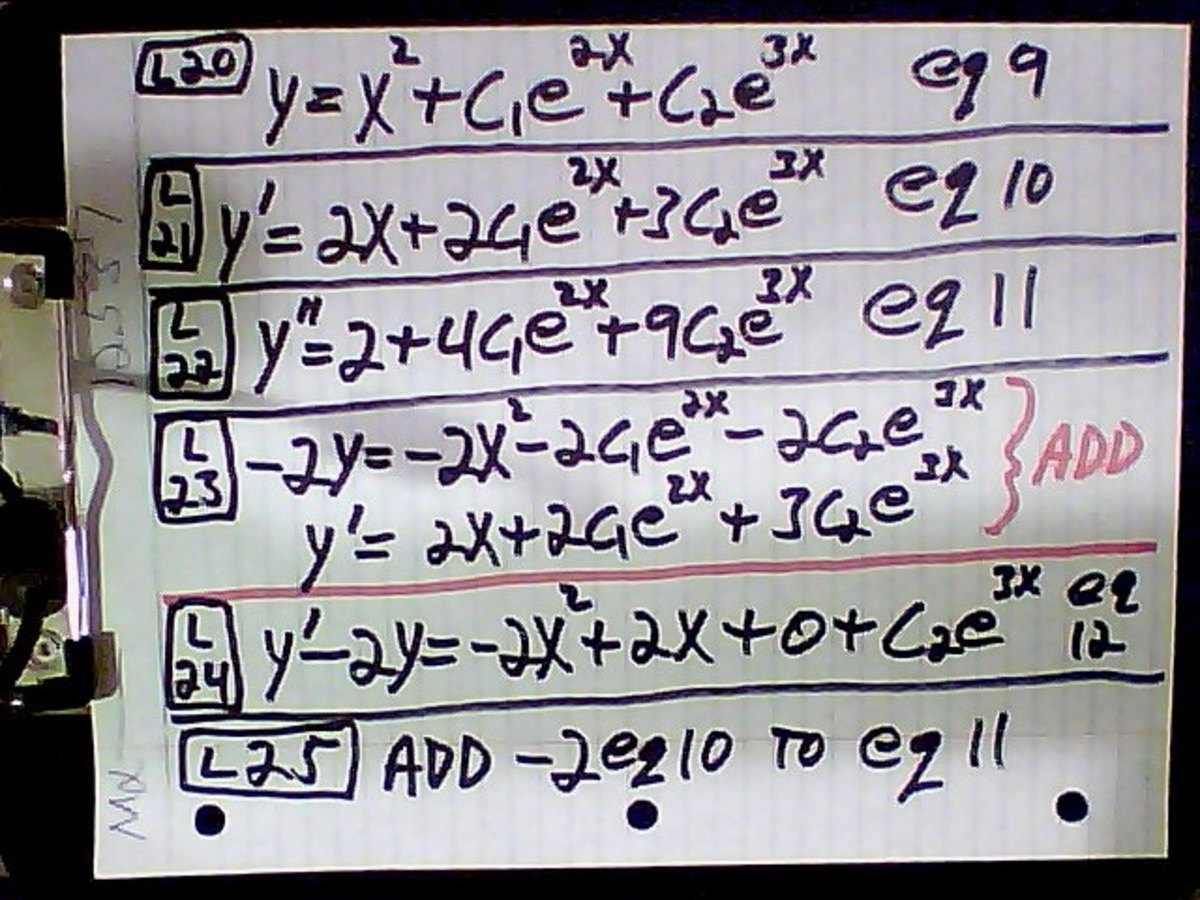 L20 y = x² + C₁e²ˣ + C₂e³ˣ eq 9
L21 y' = 2x + 2C₁e²ˣ + 3C₂e³ˣ eq 10
L22 y" = 2 + 4C₁e²ˣ + 9C₂e³ˣ eq 11
L23 -2y = -2x² - 2C₁e²ˣ - 2C₂e³ˣ } ADD
y' = 2x + 2C₁e²ˣ + 3C₂e³ˣ
L24 y' - 2y = -2x² + 2x + 0 + C₂e³ˣ eq 12
L25 ADD -2eq10 TO eq 11